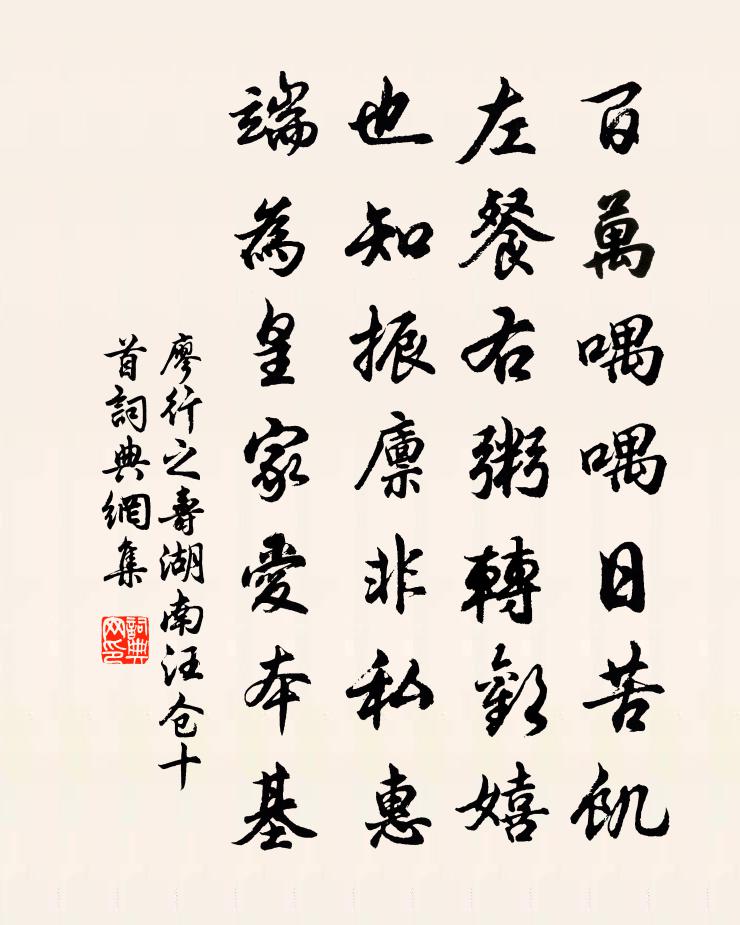 百萬喁喁日苦飢
左餐右粥轉歡嬉
也知振廩非私惠
端為皇家愛本基
廖行之壽湖南汪仓十
首詞典網集
詞典
网印